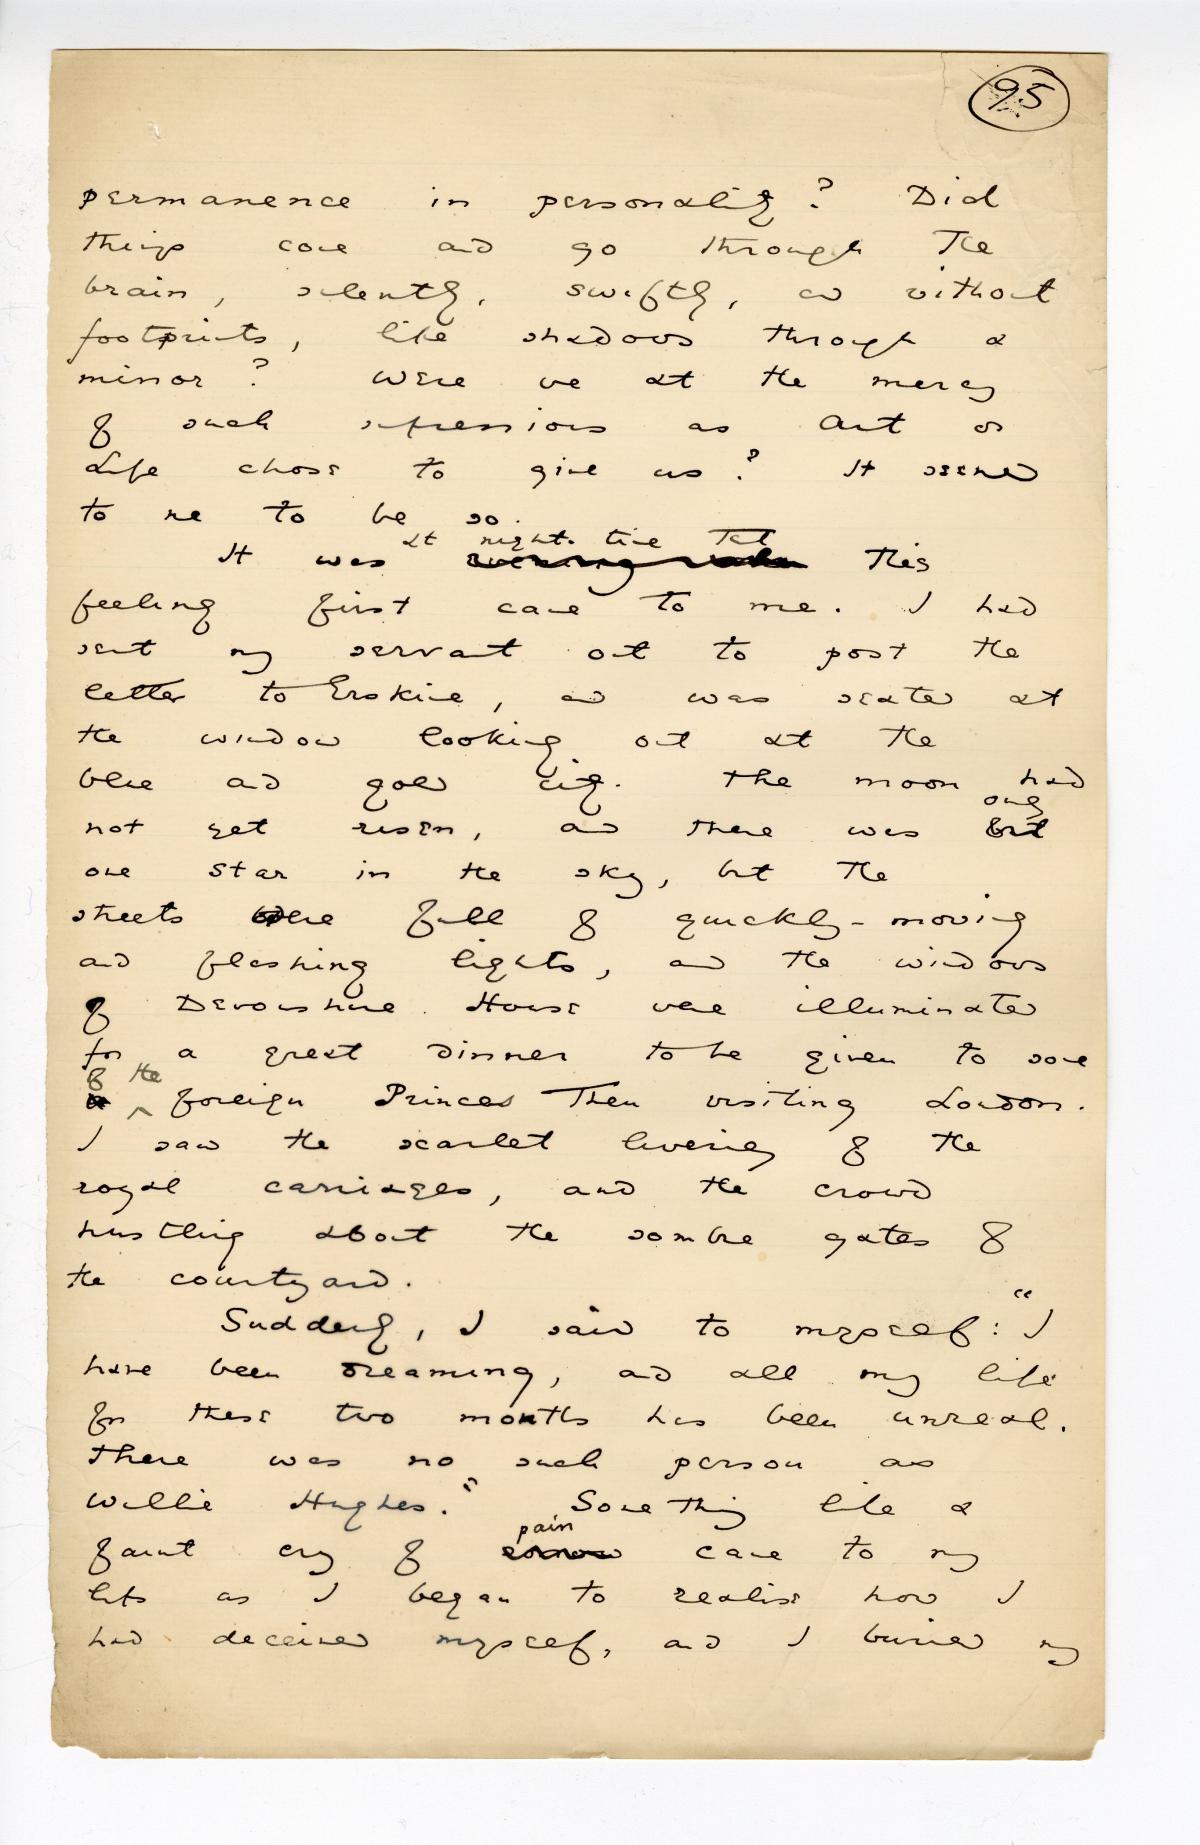 95
permanence in personality? Did
things come and go through the
brain, silently, swiftly, and without
footprints, like shadows through a
mirror? Were we at the mercy
of such impressions as Art or
Life chose to give us? It seemed
to me to be so.
at night-time that
It was evening when this
feeling first came to me. I had
sent my servant out to post the
letter to Erskine, and was seated at
the window looking out at the
blue and gold city. The moon had
only
not yet risen, and there was but
one star in the sky, but the
streets were full of quickly-moving
and flashing lights, and the windows
of Devonshire House were illuminated
for a great dinner to be given to some
of the
foreign Princes then visiting London.
I saw the scarlet liveries of the
royal carriages, and the crowd
hustling about the sombre gates of
the courtyard.
Suddenly, I said to myself: "I
have been dreaming, and all my life
for these two months has been unreal.
There was no such person as
Willie Hughes." Something like a
pain
faint cry of sorrow came to my
lips as I began to realise how I
had deceived myself, and I buried my